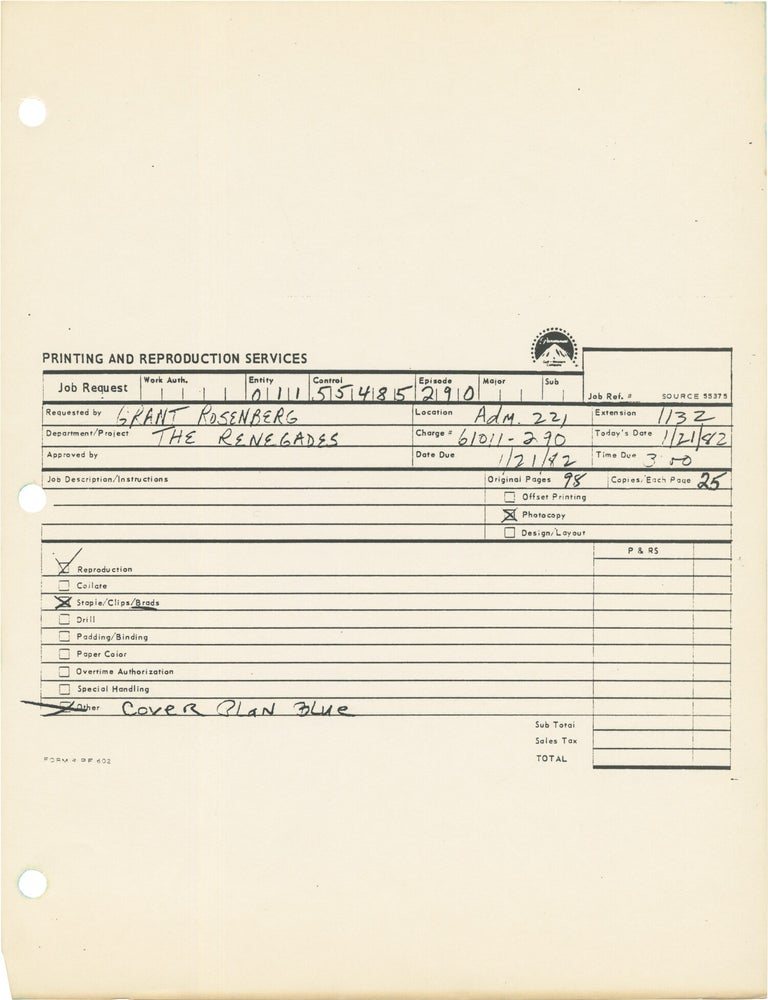 PRINTING AND REPRODUCTION SERVICES
Paramount
Job Request Work Auth. Entity 0 1 1 Control 5 5 4 8 5 Episode 2 9 0 Major Sub Job Ref. # SOURCE 55375
Requested by GRANT ROSENBERG Location Adm. 221 Extension 1132
Department/Project THE RENEGADES Charge # 61011-290 Today's Date 1/21/82
Approved by Date Due 1/21/82 Time Due 3:00
Job Description/Instructions Original Pages 98 Copies/Each Page 25
Offset Printing
Photocopy
Design/Layout
P & RS
Reproduction
Collate
Staple/Clips/Brads
Drill
Padding/Binding
Paper Color
Overtime Authorization
Special Handling
Other COVER PLAN BLUE
Sub Total
Sales Tax
TOTAL